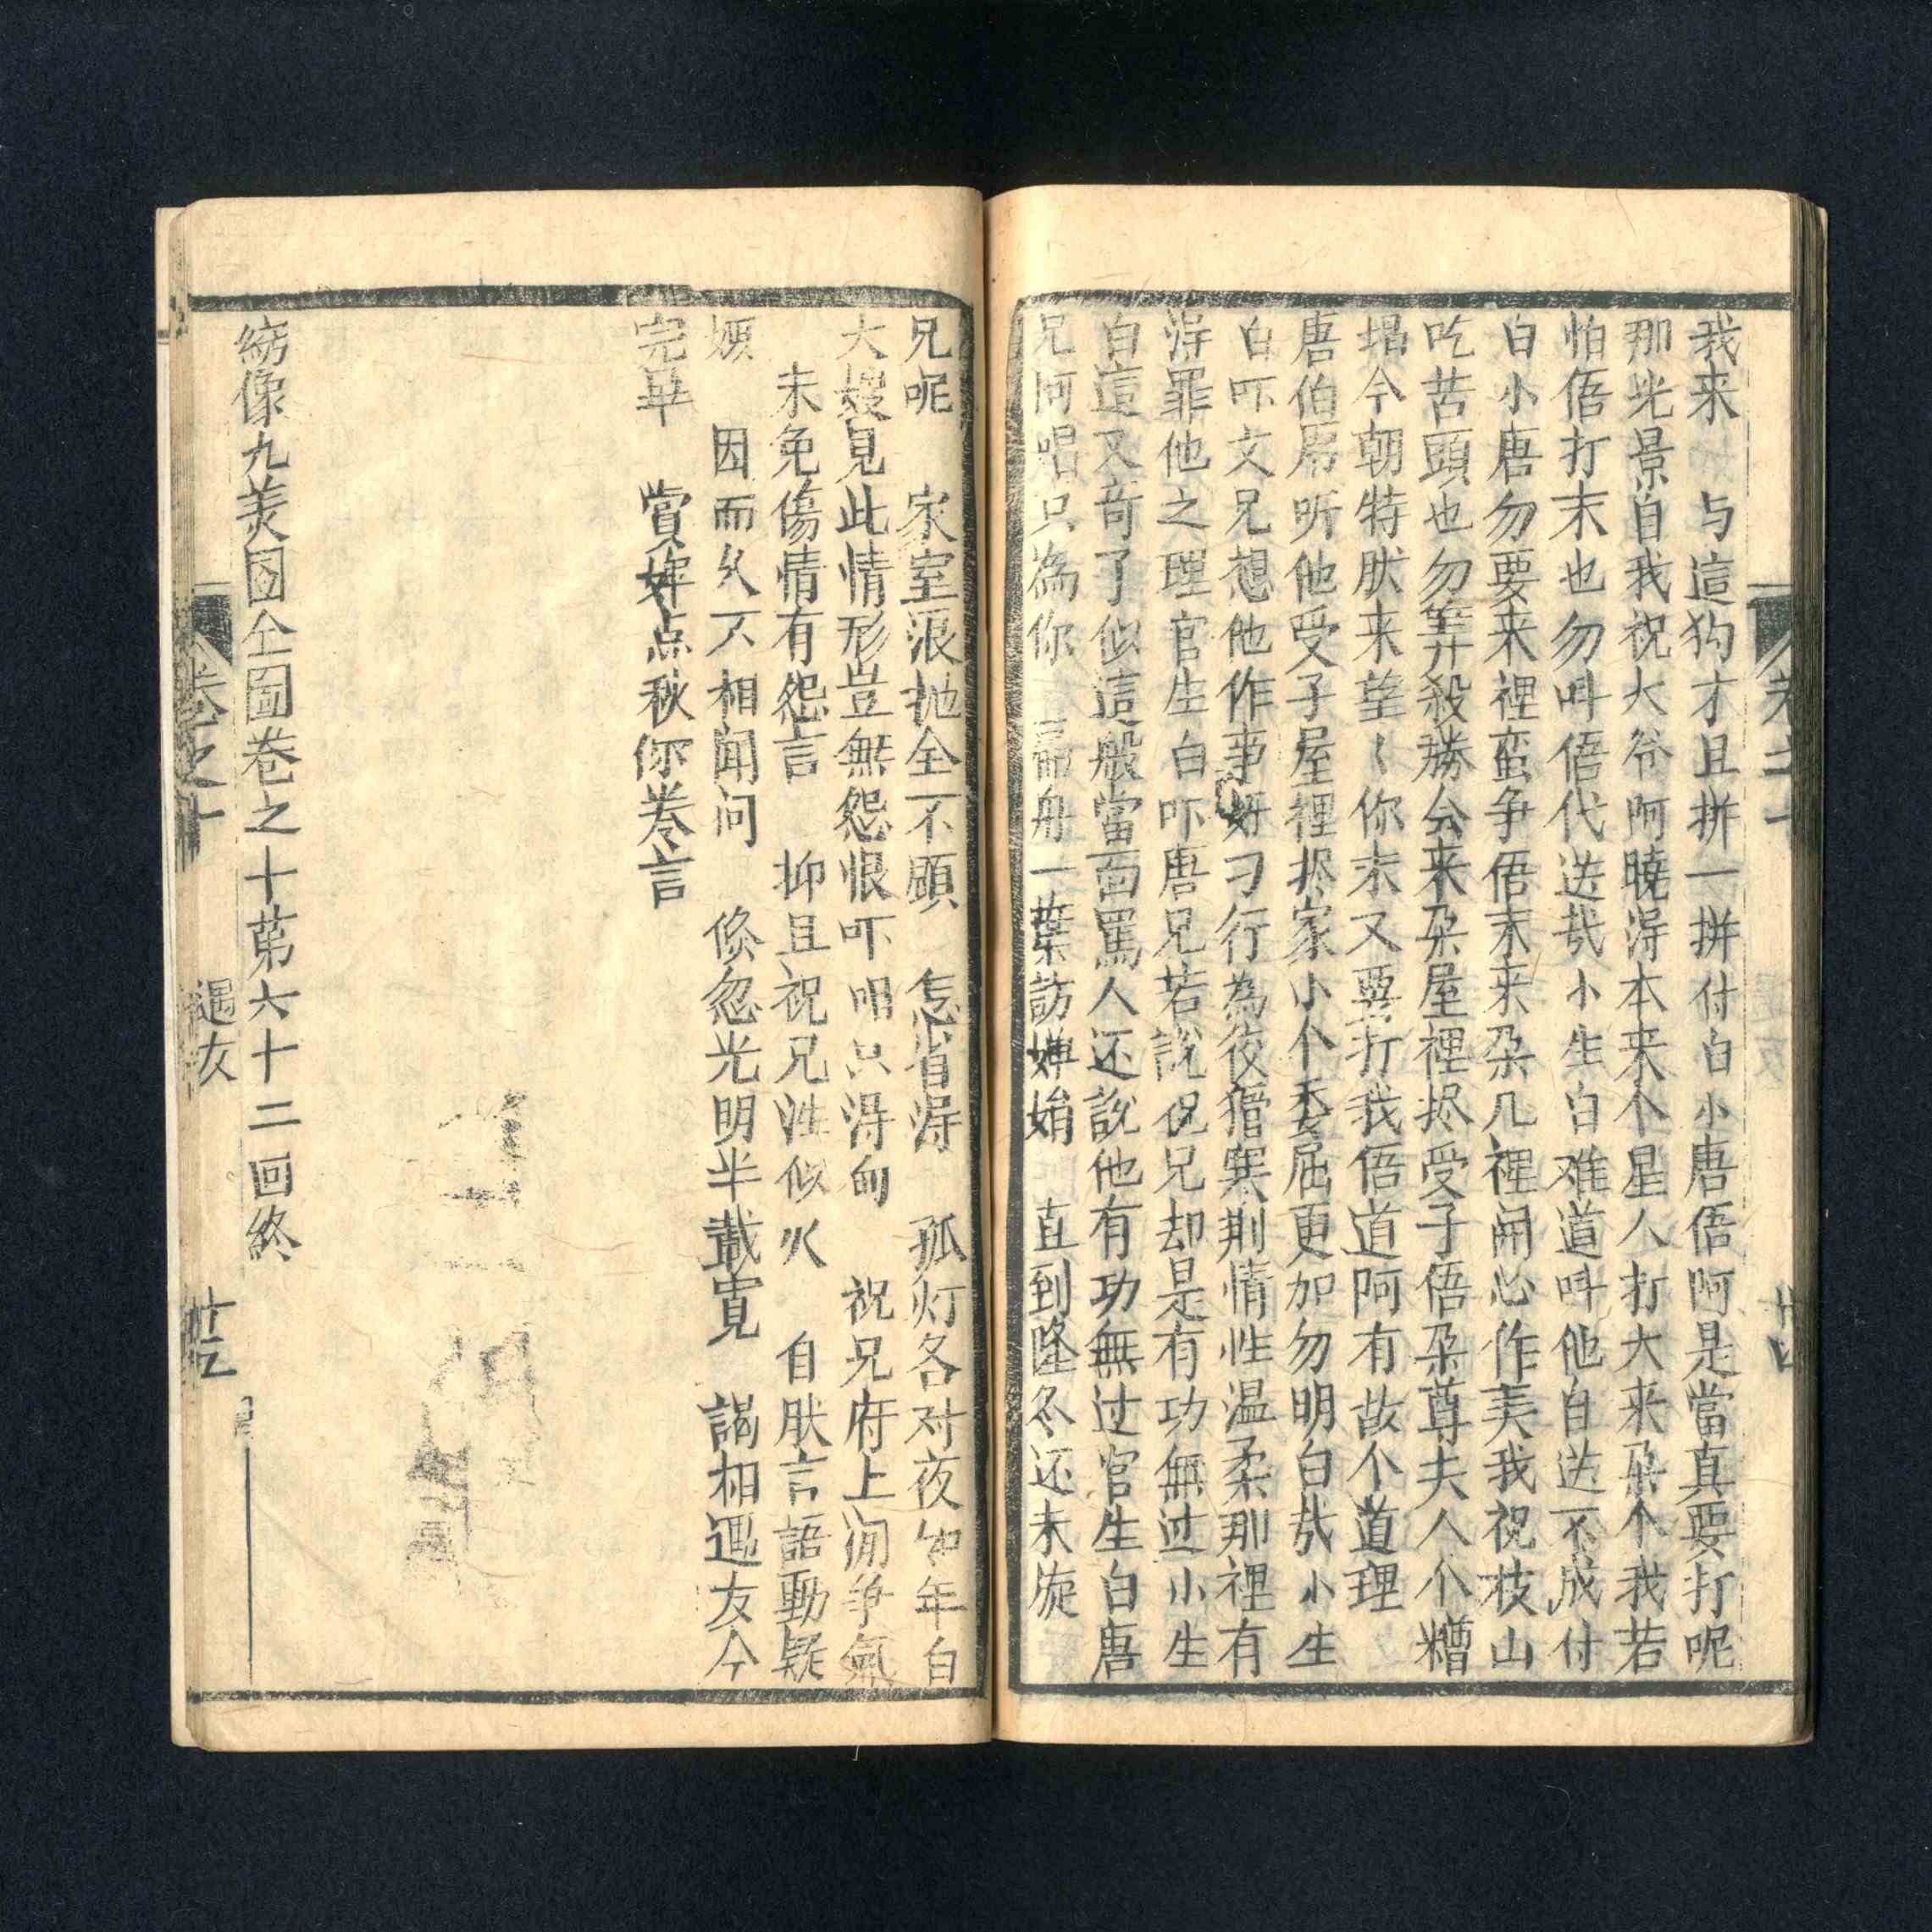 我来　与這狗才且拼一拼付白小唐俉阿是當真要打呢
那光景自我祝大爷阿曉淂本来个星人打大来朶个我若
怕俉打末也勿呌俉代送㢤小生白难道呌他白送不成付
白小唐勿要来裡蛮争俉末来朶几裡闹心作美我祝枝山
吃苦頭也勿筭殺勝公来朶屋裡抸受子俉朶尊夫人个糟
塌今朝特肰来望〻你末又要打我俉道阿有故个道理
唐伯㡳听他受子屋裡抸家小个委屈更加勿明白㢤小生
白吓文兄想他作事好刁行為夜獝寒荆情性温柔那裡有
淂罪他之理官生白吓唐兄若說祝兄却是有功無过小生
白這又竒了似這般當面罵人还說他有功無过官生白唐
兄阿唱只為你　扁舟一葉訪嬋娟　直到隆冬还未旋
兄呢　家室浪抛全不顧　怎省淂　孤灯各对夜如年白
大嫂見此情形豈無怨恨吓唱只淂向　祝兄府上闹爭氣
未免傷情有怨言　抑且祝兄性似火　自肰言語動疑
烦　因而久不相闻问　倏忽光明半載寬　謁相遇友今
完畢　賞婢点秋你卷言
綉像九美図全圖卷之十第六十二回終
卷之十　遇友　廿五